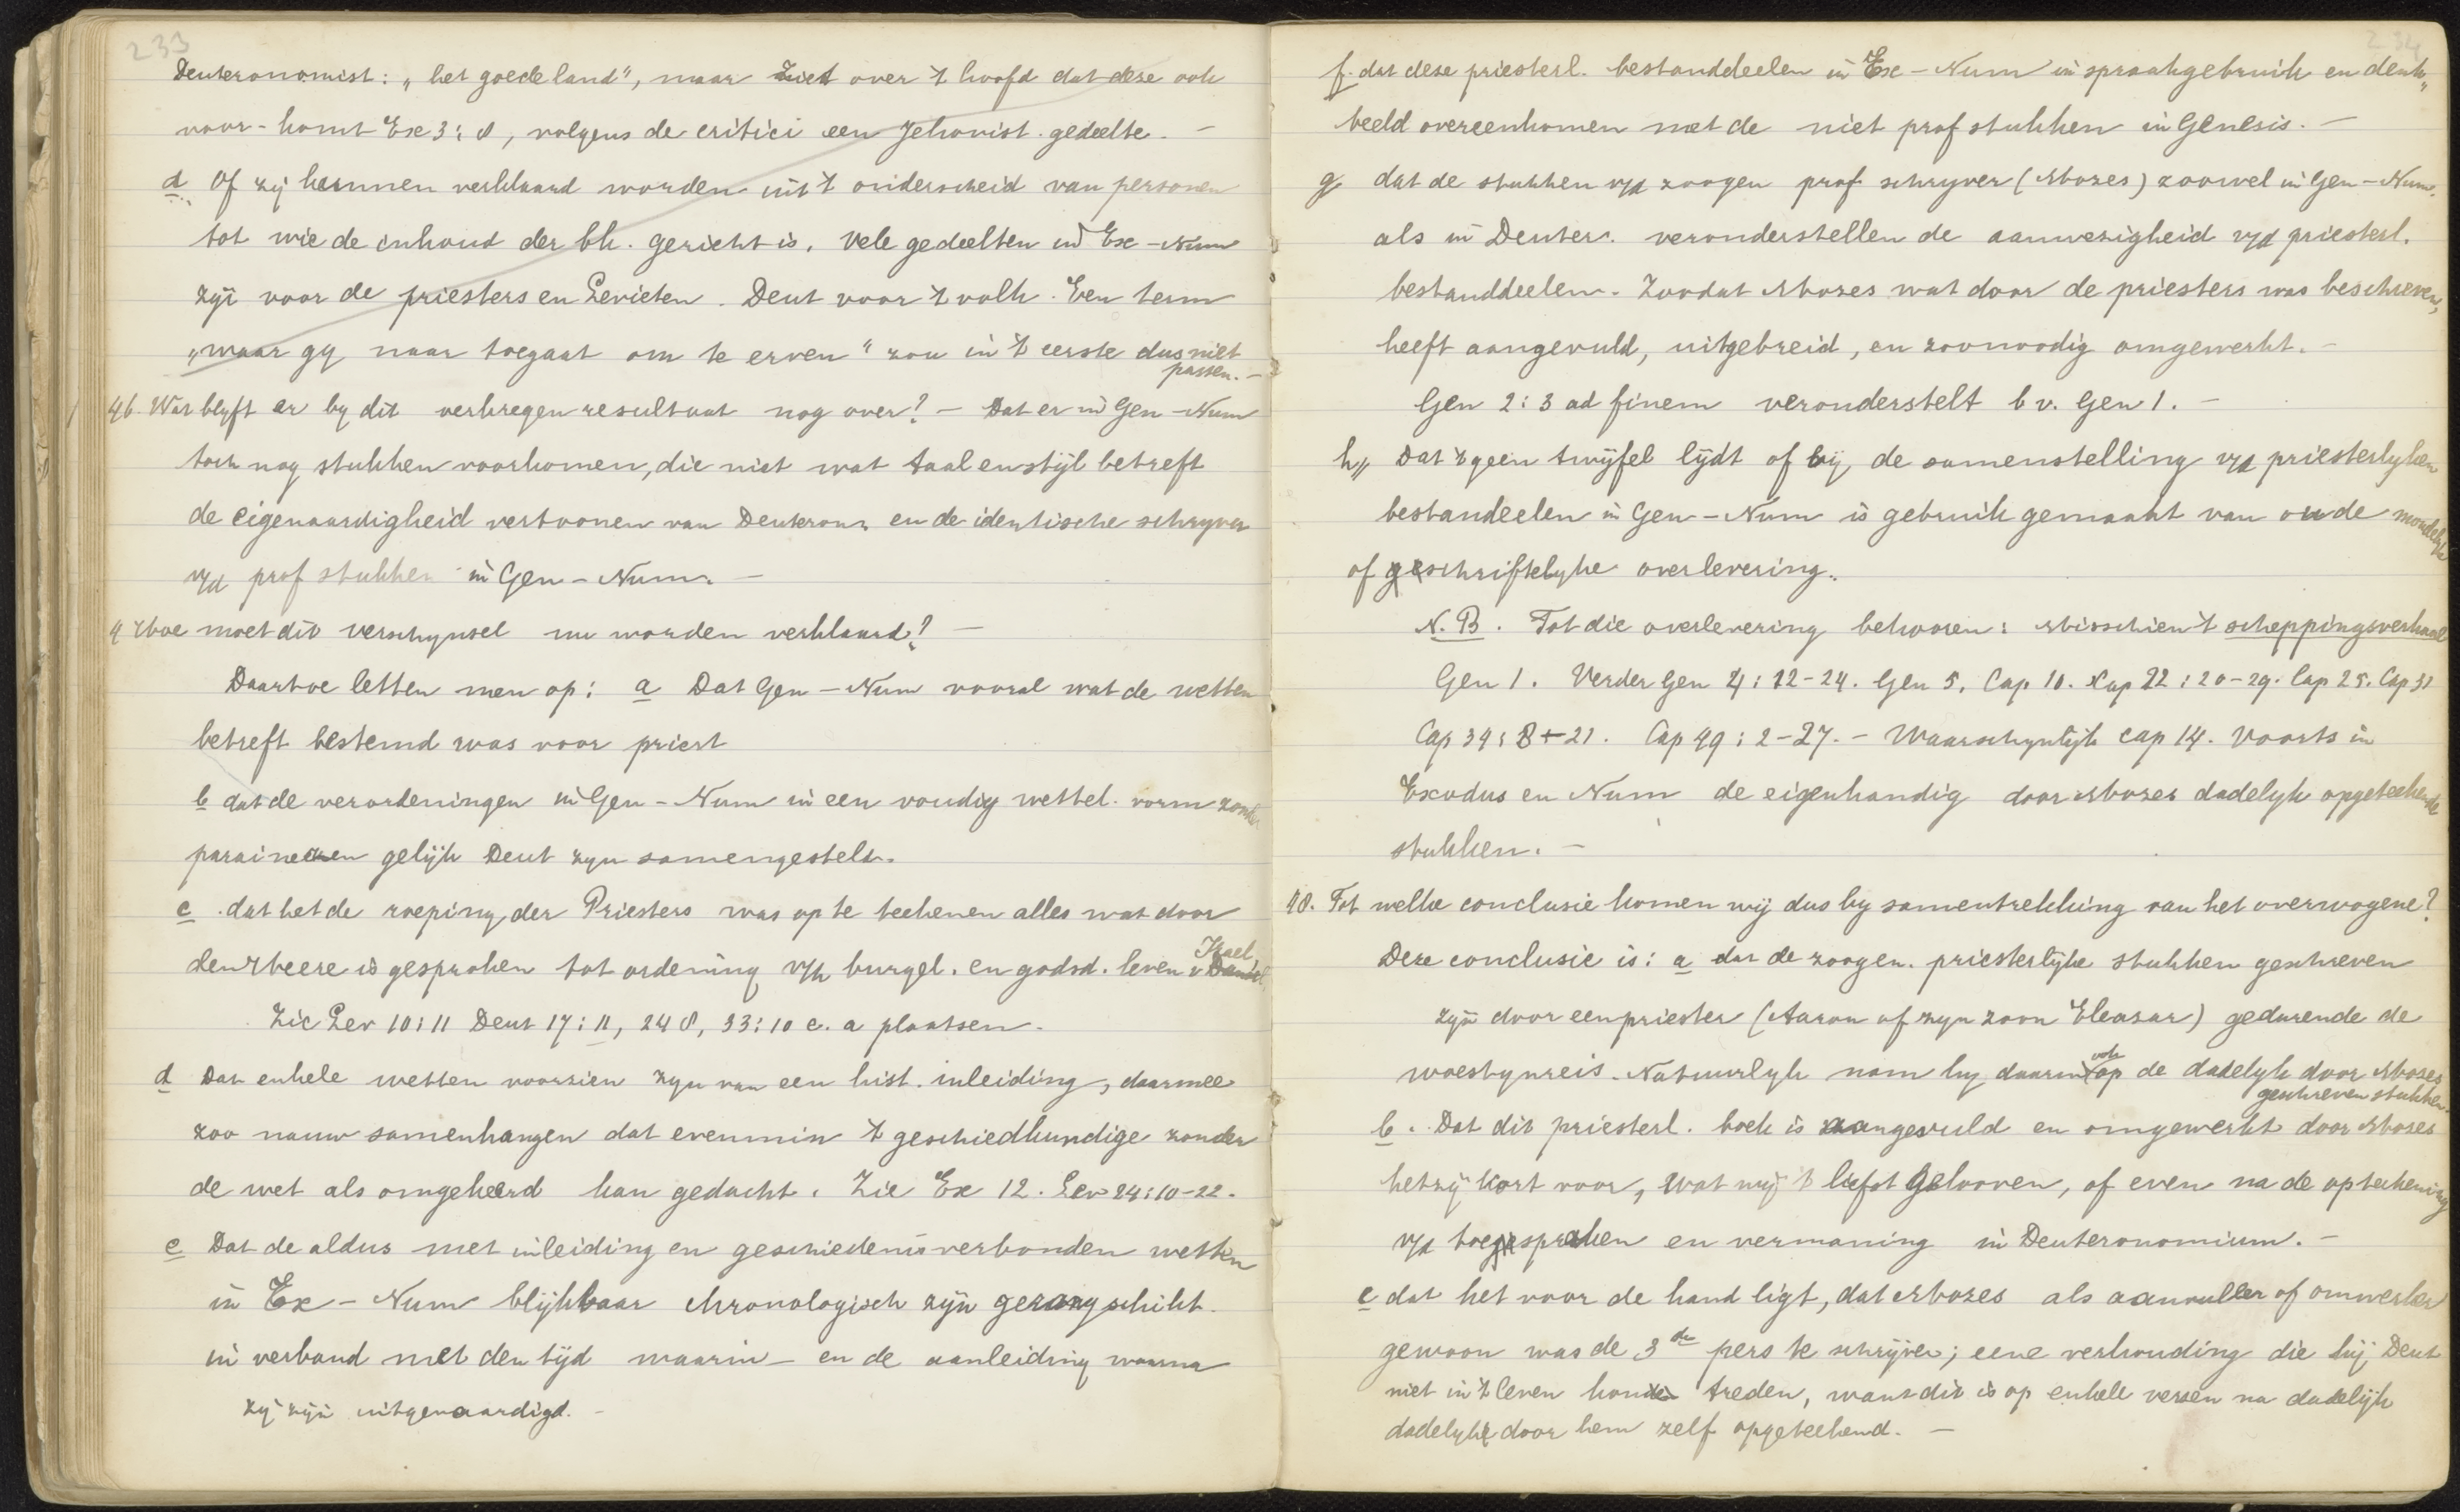 233
Deuteronomist: „het goede land", maar ziet over 't hoofd dat deze ook
voor-komt Ex 3:8, volgens de critici een Jehovist. gedeelte. —
d Of zij kunnen verklaard worden uit 't onderscheid van personen
tot wie de inhoud der bk. gericht is. Vele gedeelten in Ex-Num
zijn voor de priesters en Levieten. Deut voor 't volk. Een term
„waar gij naar toegaat om te erven" zou in 't eerste dus niet
passen. —
46. Wat blijft er by dit verkregen resultaat nog over? — Dat er in Gen-Num
toch nog stukken voorkomen, die niet wat taal en stijl betreft
de eigenaardigheid vertoonen van Deuteron. en de identische schryver
v/d prof stukken in Gen-Num. —
4 Hoe moet dit verschynsel nu worden verklaard? —
Daartoe letten men op: a Dat Gen-Num vooral wat de wetten
betreft bestemd was voor priest
b dat de verordeningen in Gen-Num in een voudig wettel. vorm zonder
parainezen gelijk Deut zyn samengesteld.
c. dat het de roeping der Priesters was op te teekenen alles wat door
den Heere is gesproken tot ordening v/h burgel. en godsd. leven v Israel,
Zie Lev 10:11 Deut 17:11, 24 8, 33:10 e. a plaatsen.
d Dat enkele wetten voorzien zyn van een hist. inleiding, daarmee
zoo nauw samenhangen dat evenmin 't geschiedkundige zonder
de wet als omgekeerd kan gedacht. Zie Ex 12. Lev 24:10-22.
e Dat de aldus met inleiding en geschiedenis verbonden wetten
in Ex-Num blijkbaar chronologisch zijn gerangschikt.
in verband met den tijd waarin- en de aanleiding waarna
zij zijn uitgevaardigd. -
234
f. dat deze priesterl. bestanddeelen in Ex-Num in spraakgebruik en denk„
beeld overeenkomen met de niet prof stukken in Genesis. —
g dat de stukken v/d zoogen prof schryver (Mozes) zoowel in Gen-Num.
als in Deuter. veronderstellen de aanwezigheid v/d priesterl.
bestanddeelen. Zoodat Mozes wat door de priesters was beschreven,
heeft aangevuld, uitgebreid, en zoonoodig omgewerkt. -
Gen 2:3 ad finem veronderstelt b v. Gen 1. —
h„ Dat 't geen twijfel lijdt of bij de samenstelling v/d priesterlyken
bestandeelen in Gen-Num is gebruik gemaakt van oude mondelyke
of geschriftelyke overlevering.
N.B. Tot die overlevering behooren: Misschien 't scheppingsverhaal
Gen 1. Verder Gen 4:22-24. Gen 5. Cap. 10. Kap 22:20-29. Cap 25. Cap 31
Cap 34:8+21. Cap 49:2-27. — Waarschynlijk cap 14. Voorts in
Exodus en Num de eigenhandig door Mozes dadelyk opgeteekende
stukken. —
48. Tot welke conclusie komen wij dus by samentrekking van het overwogene?
Deze conclusie is: a dat de zoogen. priesterlijke stukken geschreven
zijn door een priester (Aaron of zyn zoon Eleasar) gedurende de
woestynreis. Natuurlyk nam hy daarin ook op de dadelyk door Mozes
geschreven stukken.
b. Dat dit priesterl. boek is aangevuld en omgewerkt door Mozes
hetzij kort voor, wat wij 't liefst gelooven, of even na de opteekening
v/d toespraken en vermaning in Deuteronomium. —
c dat het voor de hand ligt, dat Mozes als aanvuller of omwerker
gewoon was de 3de pers te schrijven; eene verhouding die bij Deut
niet in 't leven konde treden, want dit is op enkele verzen na dadelijk
dadelyk door hem zelf opgeteekend. —